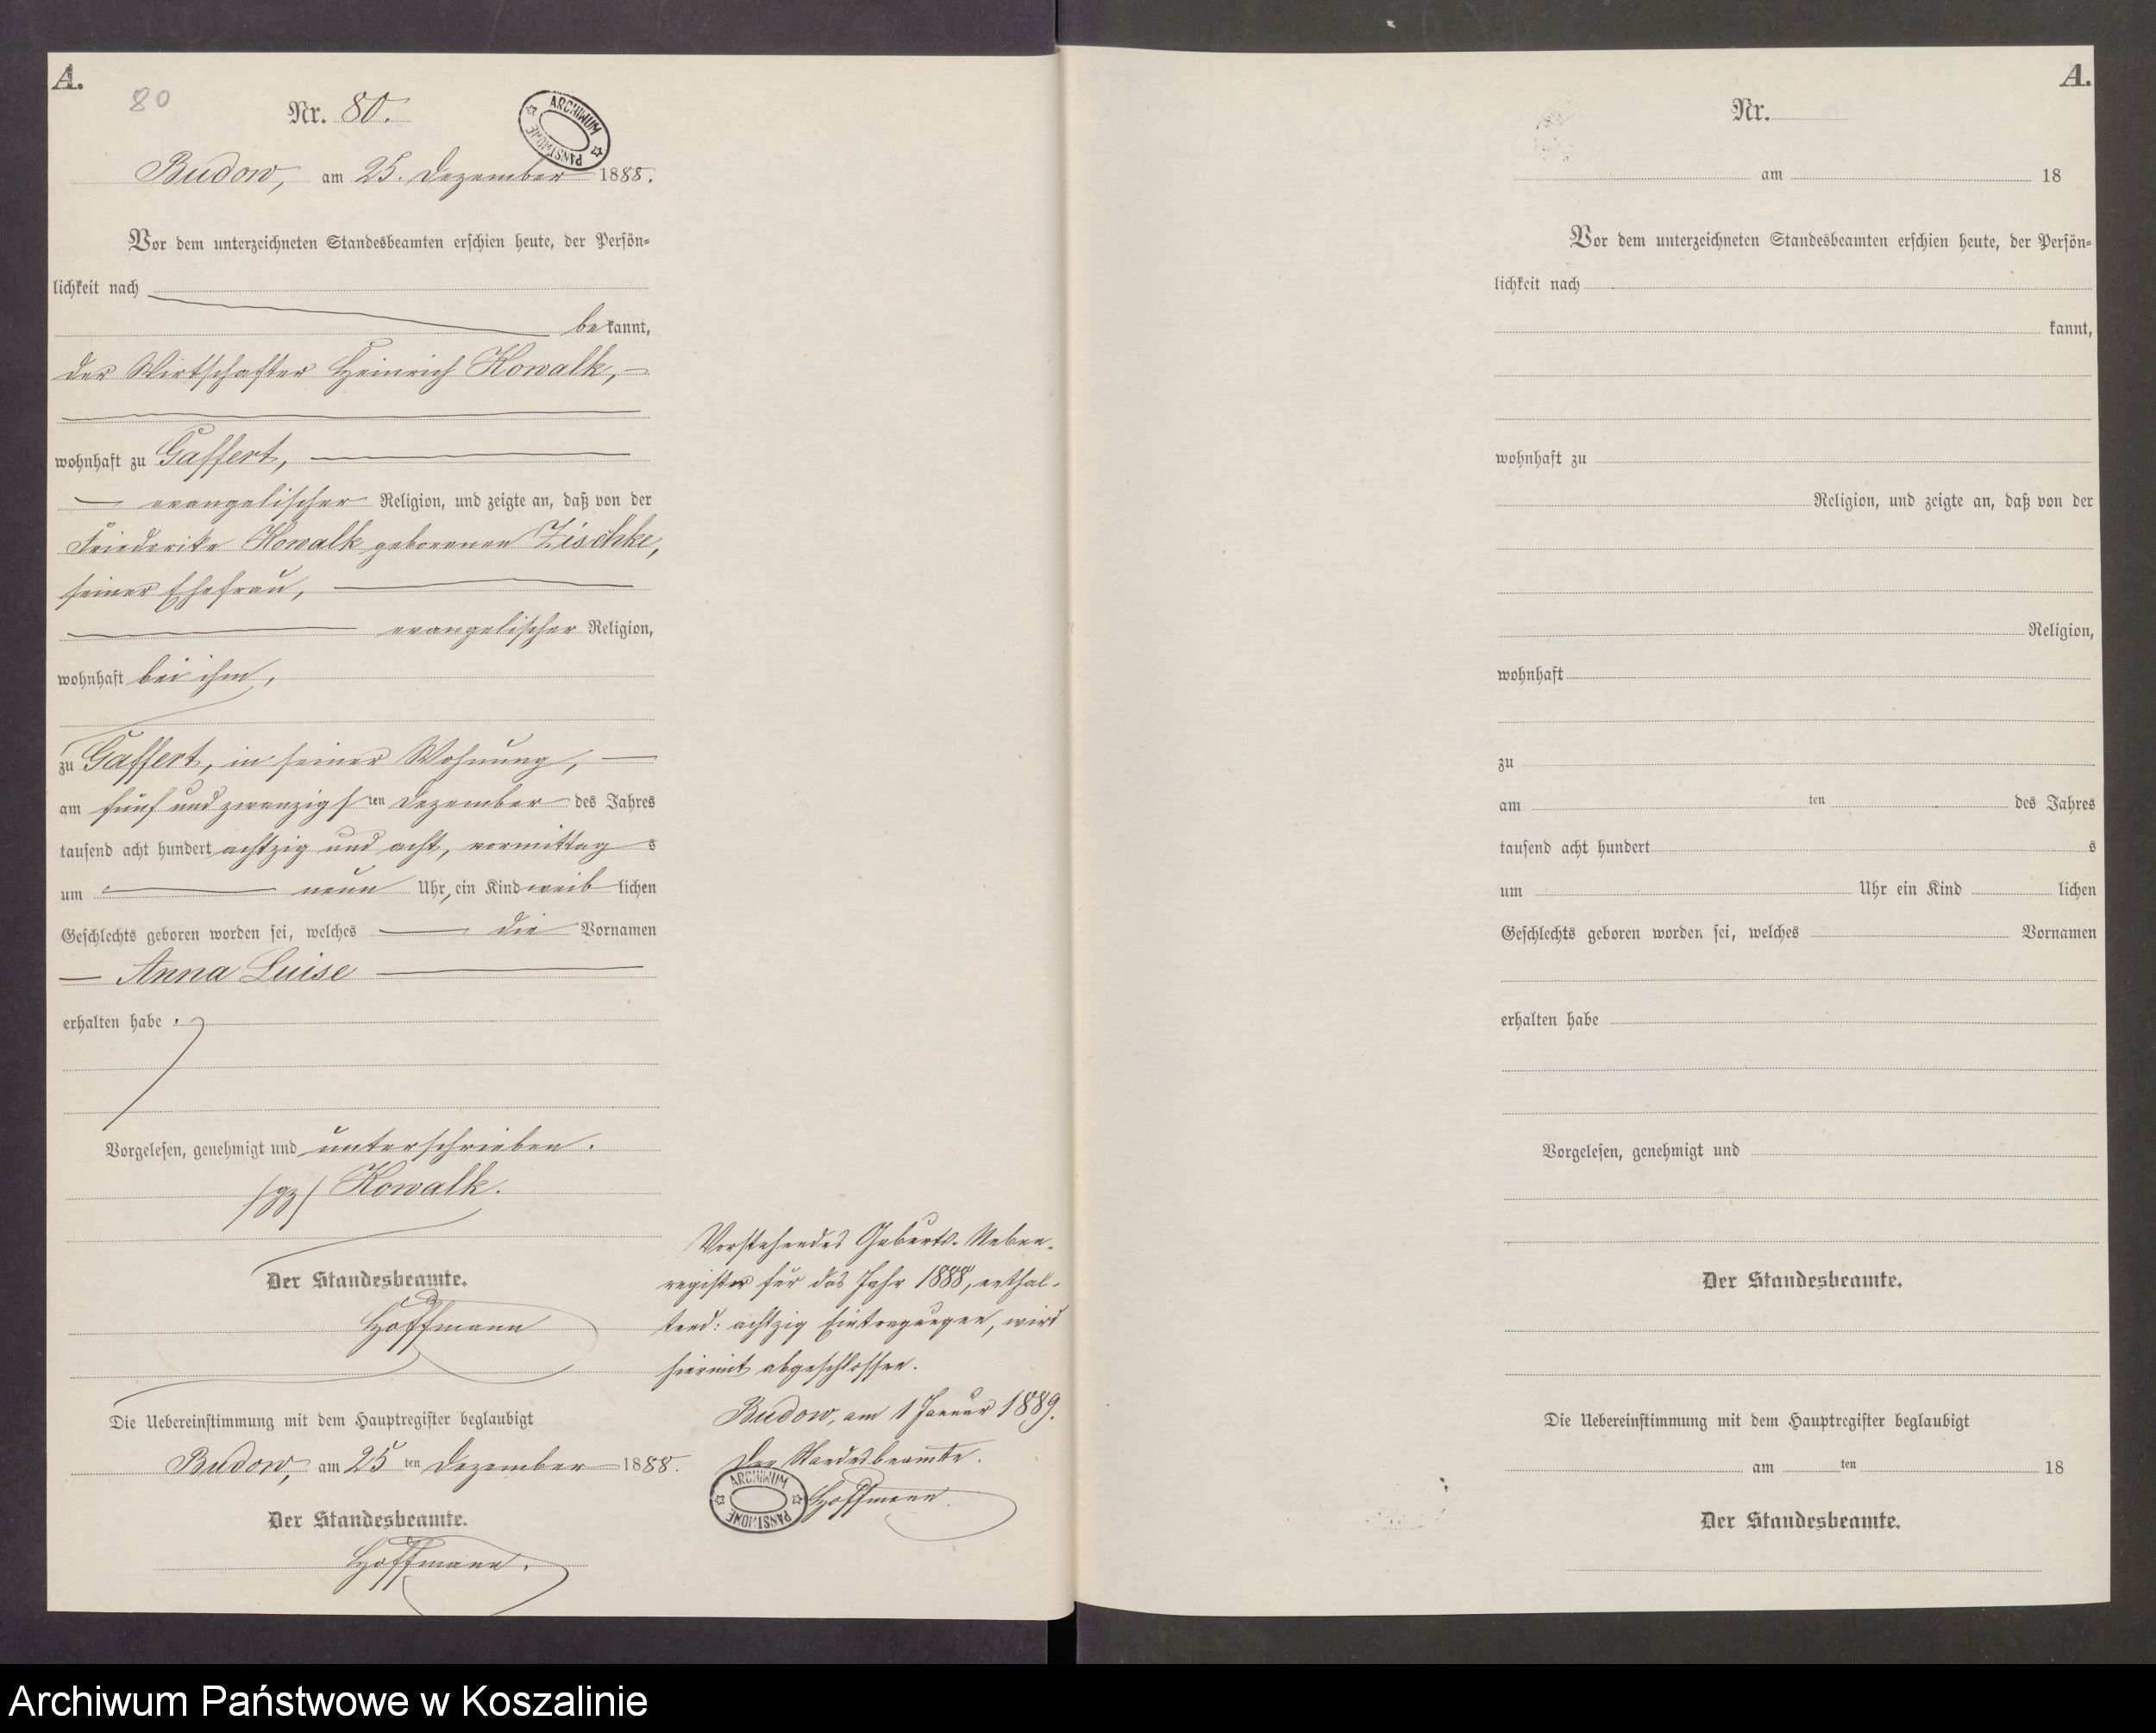 A.
80
Nr. 80.
ARCHIWUM PAŃSTWOWE
Budow, am 25. Dezember 1888.
Vor dem unterzeichneten Standesbeamten erschien heute, der Persön=
lichkeit nach
bekannt,
der Wirtschafter Heinrich Kowalk,
wohnhaft zu Gaffert,
evangelischer Religion, und zeigte an, daß von der
Friederike Kowalk geborenen Zischke,
seiner Ehefrau,
evangelischer Religion,
wohnhaft bei ihm,
zu Gaffert, in seiner Wohnung,
am fünf und zwanzigsten Dezember des Jahres
tausend acht hundert achtzig und acht, vormittags
um neun Uhr, ein Kind weiblichen
Geschlechts geboren worden sei, welches die Vornamen
Anna Luise
erhalten habe.
Vorgelesen, genehmigt und unterschrieben.
/gz/ Kowalk.
Der Standesbeamte.
Hoffmann
Die Uebereinstimmung mit dem Hauptregister beglaubigt
Budow, am 25ten Dezember 1888.
Der Standesbeamte.
Hoffmann.
Vorstehendes Geburts-Neben-
register für das Jahr 1888, enthal-
tend: achtzig Eintragungen, wird
hiermit abgeschlossen.
Budow, am 1 Januar 1889.
Der Standesbeamte.
Hoffmann.
ARCHIWUM PAŃSTWOWE
A.
Nr.
am 18
Vor dem unterzeichneten Standesbeamten erschien heute, der Persön=
lichkeit nach
kannt,
wohnhaft zu
Religion, und zeigte an, daß von der
Religion,
wohnhaft
zu
am ten des Jahres
tausend acht hundert s
um Uhr ein Kind lichen
Geschlechts geboren worden sei, welches Vornamen
erhalten habe
Vorgelesen, genehmigt und
Der Standesbeamte.
Die Uebereinstimmung mit dem Hauptregister beglaubigt
am ten 18
Der Standesbeamte.
Archiwum Państwowe w Koszalinie